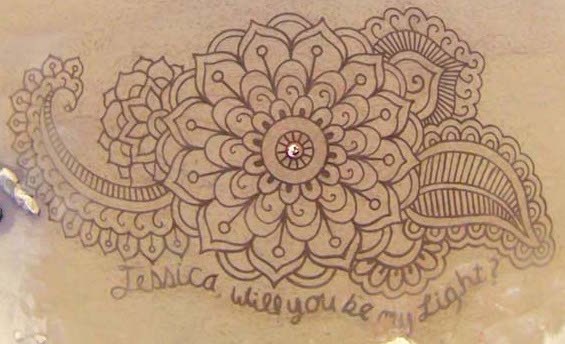 Jessica, will you be my Light?